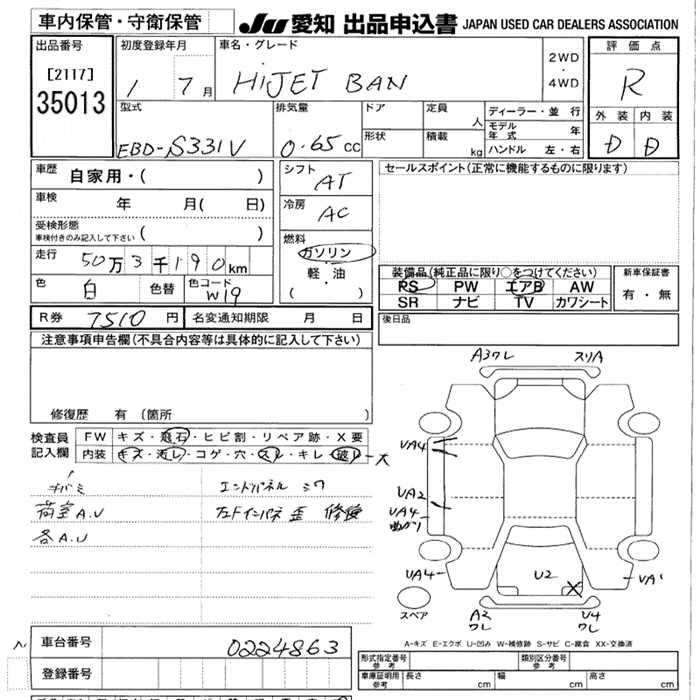 車内保管・守衛保管
JU 愛知 出品申込書 JAPAN USED CAR DEALERS ASSOCIATION
出品番号
[2117]
35013
初度登録年月
1 7 月
車名・グレード
HiJET BAN
2WD
・
4WD
評価点
R
外装 内装
D D
型式
EBD-S331V
排気量
0.65 cc
ドア
定員 人
形状
積載 kg
ディーラー・並行
モデル年式 年
ハンドル 左・右
車歴 自家用・( )
車検 年 月( 日)
受検形態
車検付きのみ記入して下さい ( )
走行 50万3千190km
色 白 色替 色コード W19
シフト AT
冷房 AC
燃料
ガソリン
軽・油
( )
セールスポイント(正常に機能するものに限ります)
装備品(純正品に限り○をつけてください)
PS PW エアB AW
SR ナビ TV カワシート
新車保証書
有・無
R券 7510 円 名変通知期限 月 日
後日品
注意事項申告欄(不具合内容等は具体的に記入して下さい)
修復歴 有 (箇所 )
検査員記入欄
FW キズ・飛石・ヒビ割・リペア跡・X要
内装 キズ・汚レ・コゲ・穴・スレ・キレ・破レ-大
荷室A.U
各A.U
エンドパネル シワ
左Fインパネ 歪 修復
A3ワレ スリA
UA4
UA2
UA4
曲がり
UA4
U2
UA1
スペア
A2
ワレ
U4
ワレ
A-キズ E-エクボ U-凹み W-補修跡 S-サビ C-腐食 XX-交換済
車台番号 0224863
登録番号
型式指定番号
参考
類別区分番号
参考
車庫証明用
参考
長さ cm 幅 cm 高さ cm